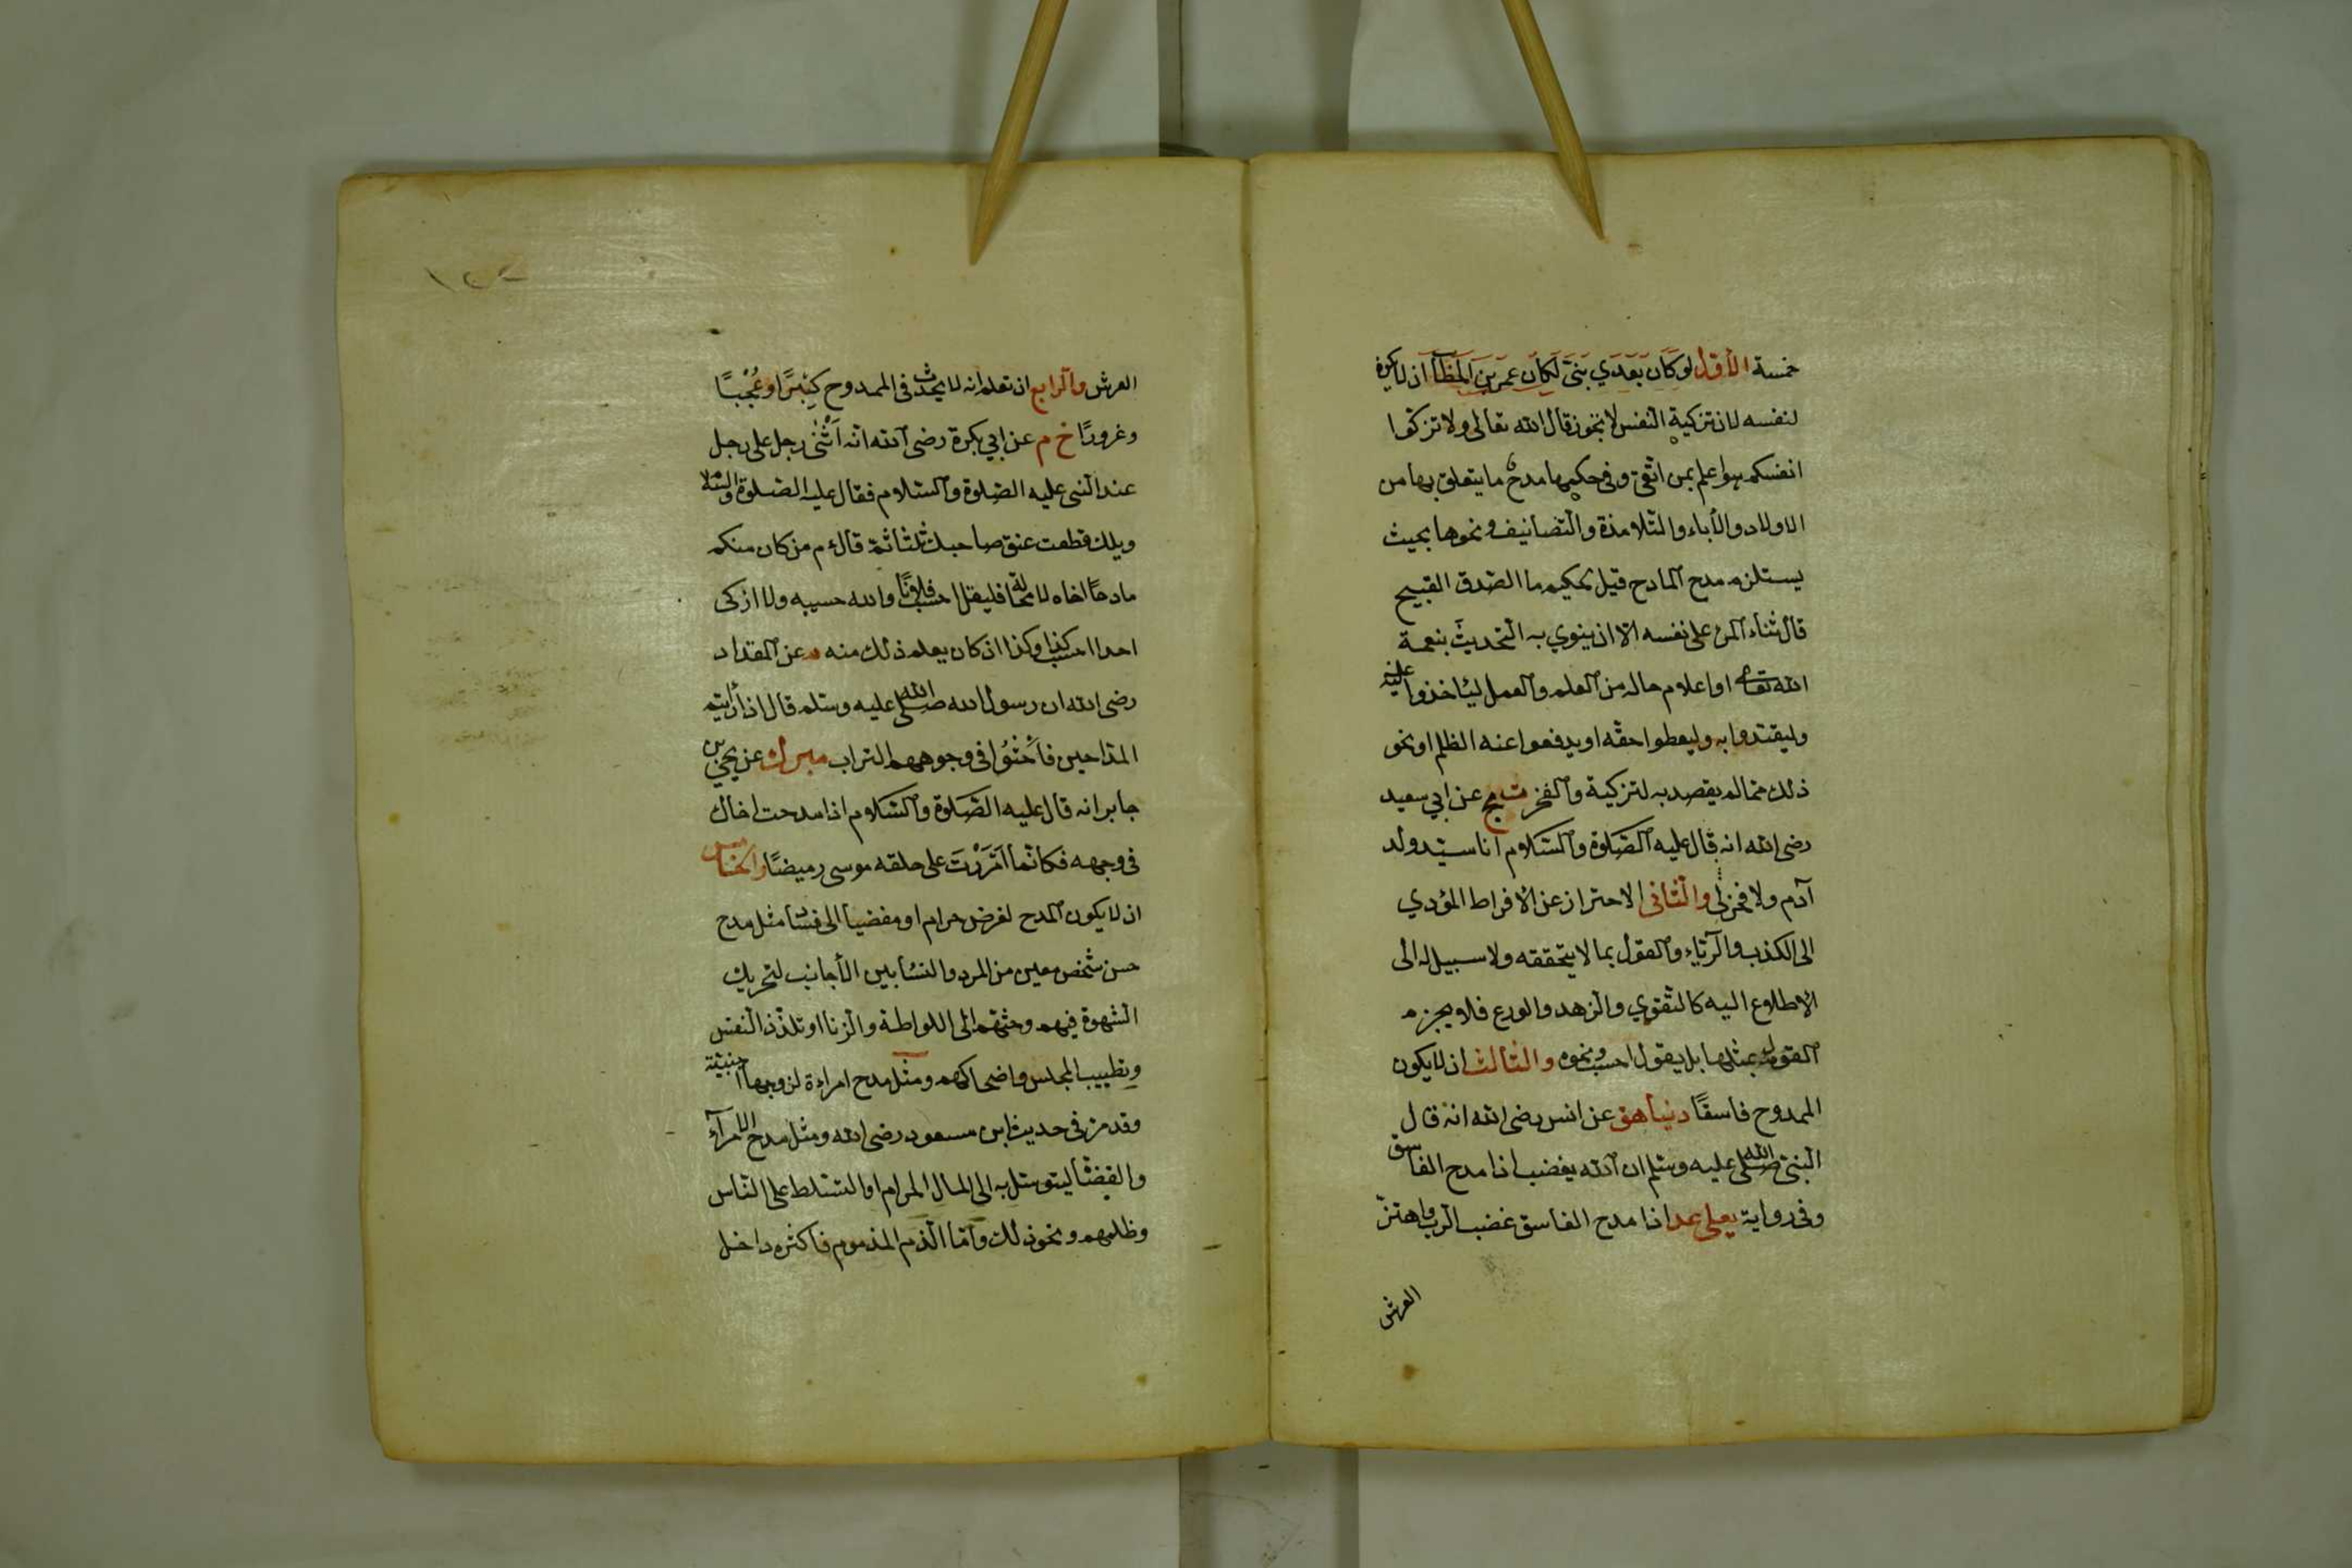 خمسة الأول لو كان بعدي نبي لكان عمر بن الخطاب ان لا يكون
لنفسه لان تزكية النفس لا يجوز قال الله تعالى ولا تزكوا
انفسكم هو اعلم بمن اتقى وفي حكمها مدح ما يتعلق بها من
الاولاد والأباء والتلامذة والتصانيف ونحوها بحيث
يستلزم مدح المادح قيل لحكيم ما الصدق القبيح
قال ثناء المرء على نفسه الا ان ينوي به التحديث بنعمة
الله تعالى او اعلام حاله من العلم والعمل ليأخذوا عليه
وليقتدوا به وليعطوا حقه او يدفعوا عنه الظلم او نحو
ذلك مما لم يقصد به لتزكية والفخر ت مج عن ابي سعيد
رضى الله انه قال عليه الصلاة والسلام انا سيد ولد
آدم ولا فخر لي والثاني الاحتراز عن الأفراط المؤدي
الى الكذب والرياء والقول بما لا يتحققه ولا سبيل له الى
الاطلاع اليه كالتقوي والزهد والورع فلا يجزم
القول بمثلها بل يقول احسب ونحوه والثالث ان لا يكون
الممدوح فاسقا دنيا هق عن انس رضى الله انه قال
النبي صلى الله عليه وسلم ان الله يغضب اذا مدح الفاسق
وفي رواية يعلى عد اذا مدح الفاسق غضب الرب واهتز
العرش
العرش والرابع ان تعلم انه لا يحدث في الممدوح كبرا وعجبا
وغرورا خ م عن ابي بكرة رضى الله انه اثنى رجل على رجل
عند النبى عليه الصلوة والسلام فقال عليه الصلوة والسلا
ويلك قطعت عنق صاحبك ثلثا ثمة قال م من كان منكم
مادحا اخاه لا محالة فليقل احسب فلانا والله حسيبه ولا ازكى
احدا احسب كذا وكذا ان كان يعلم ذلك منه م عن المقداد
رضى الله ان رسول الله صلى الله عليه وسلم قال اذا رأيتم
المداحين فاحثوا في وجوههم التراب مبرك عن يحيى بن
جابر انه قال عليه الصلاة والسلام اذا مدحت اخاك
في وجهه فكانما امررت على حلقه موسى رميضا والخامس
ان لا يكون المدح لغرض حرام او مفضيا الى فساد مثل مدح
حسن شخص معين من المرد والنساء بين الأجانب لتحريك
الشهوة فيهم وحثهم الى اللواطة والزنا او تلذذ النفس
وتطييب المجلس واضحاكهم ومثل مدح امراءة لزوجها اجنبية
وقد مر في حديث ابن مسعود رضى الله ومثل مدح الامراء
والقضاة ليتوسل به الى المال الحرام او التسلط على الناس
وظلمهم ونحو ذلك واما الذم المذموم فاكثره داخل